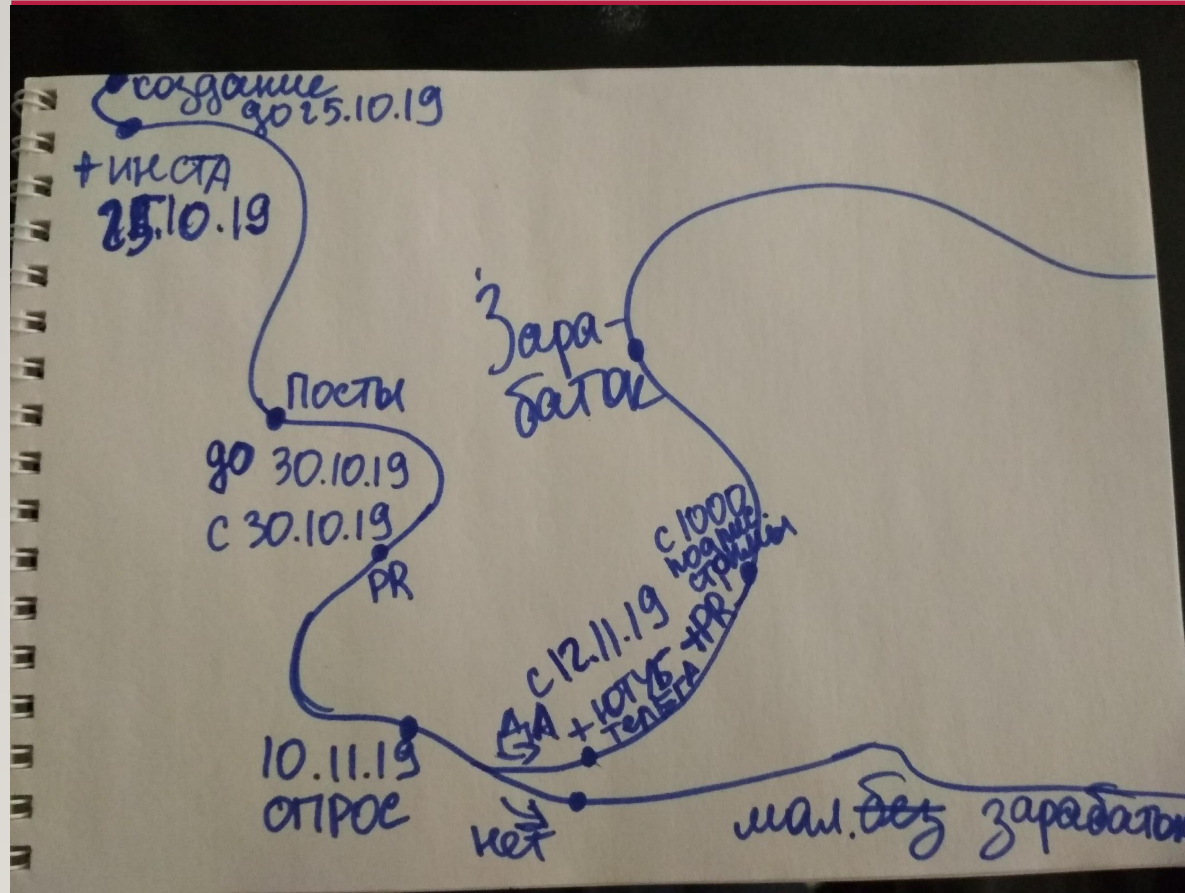 создание
до 25.10.19
+ инста
25.10.19
Посты
до 30.10.19
с 30.10.19
PR
10.11.19
ОПРОС
ДА
нет
с 12.11.19
+ ЮТУБ + PR
телега
с 1000
подпис.
стримы
Зара-
баток
мал. без заработок